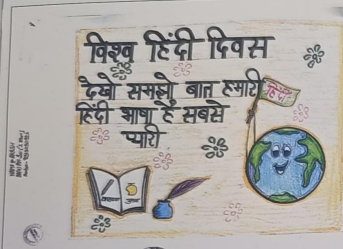 विश्व हिंदी दिवस
देखो समझो बात हमारी
हिंदी
हिंदी भाषा है सबसे
प्यारी